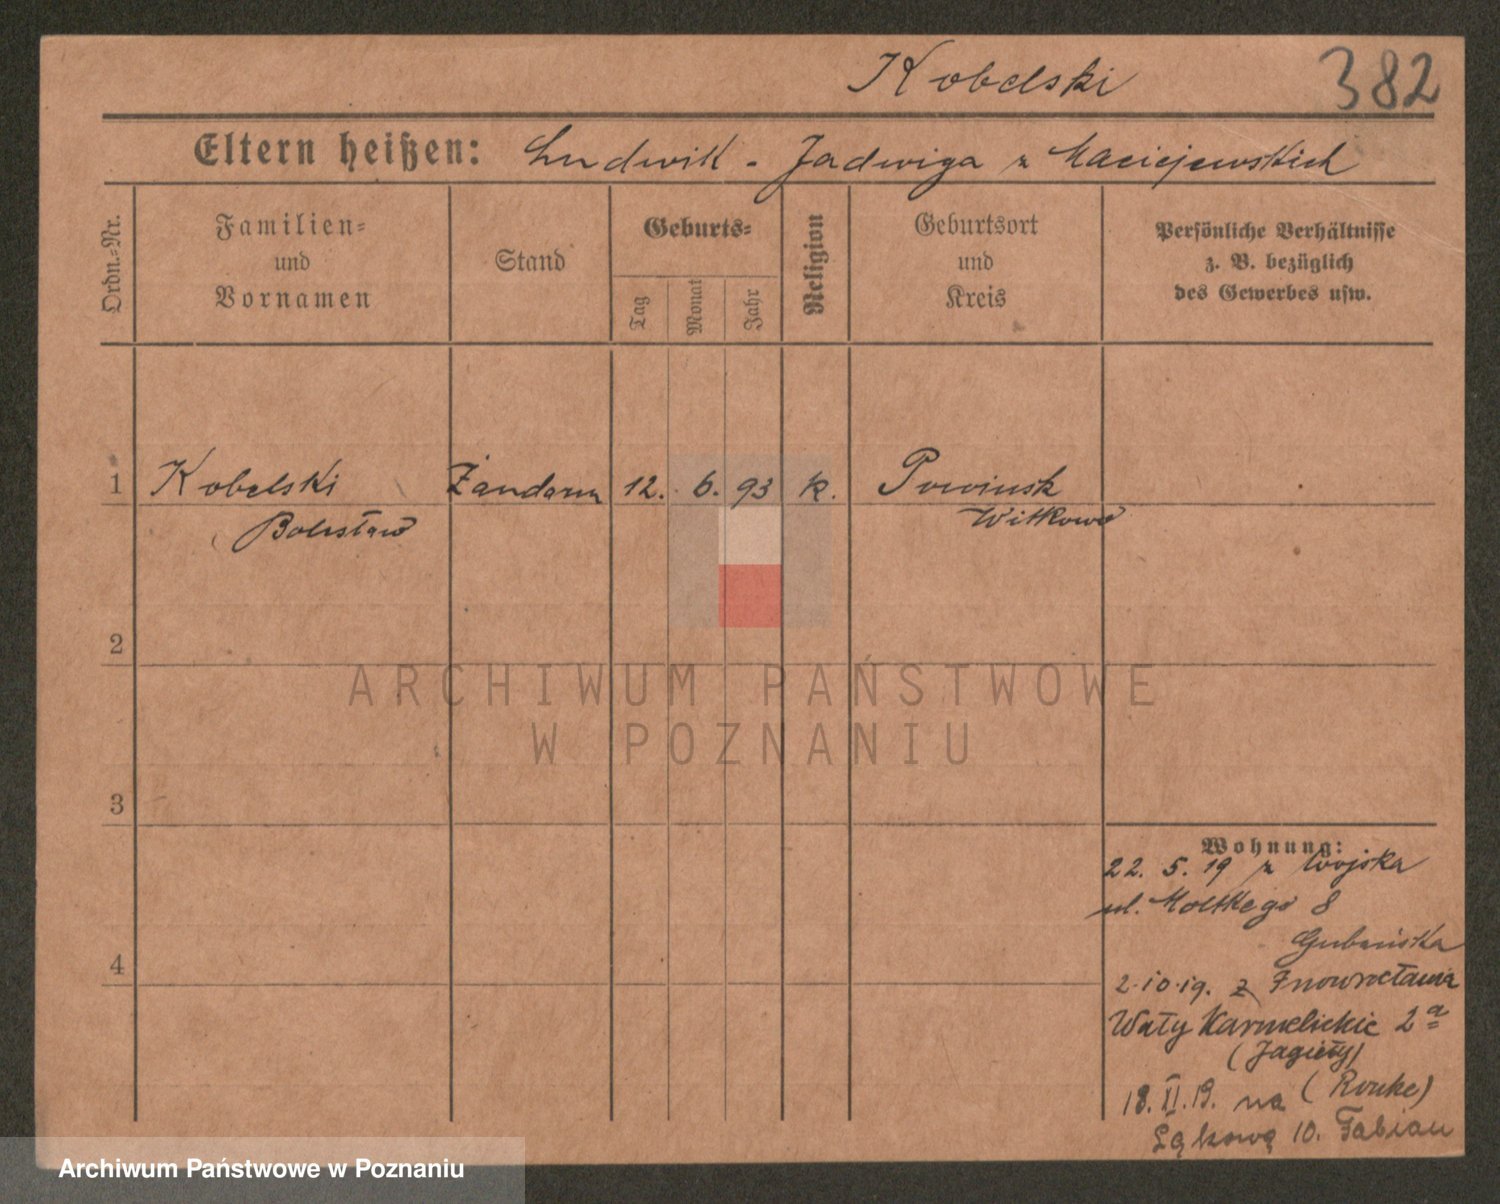 Kobelski 382
Eltern heißen: Ludwik - Jadwiga z Maciejewskich
Ordn.-Nr.
Familien-
und
Vornamen
Stand
Geburts-
Tag
Monat
Jahr
Religion
Geburtsort
und
Kreis
Persönliche Verhältnisse
z. B. bezüglich
des Gewerbes usw.
1 Kobelski Żandarm 12. 6. 93 k.
Bolesław Witkowo
2
ARCHIWUM PAŃSTWOWE
W POZNANIU
3
Wohnung:
22. 5. 19 z Wojska
ul. Moltkego 8
4
2.10.19. z Inowrocławia
Wały Karmelickie 2a
(Jagiełły)
18. XI. 19. na
Łąkową 10. Fabian
Archiwum Państwowe w Poznaniu